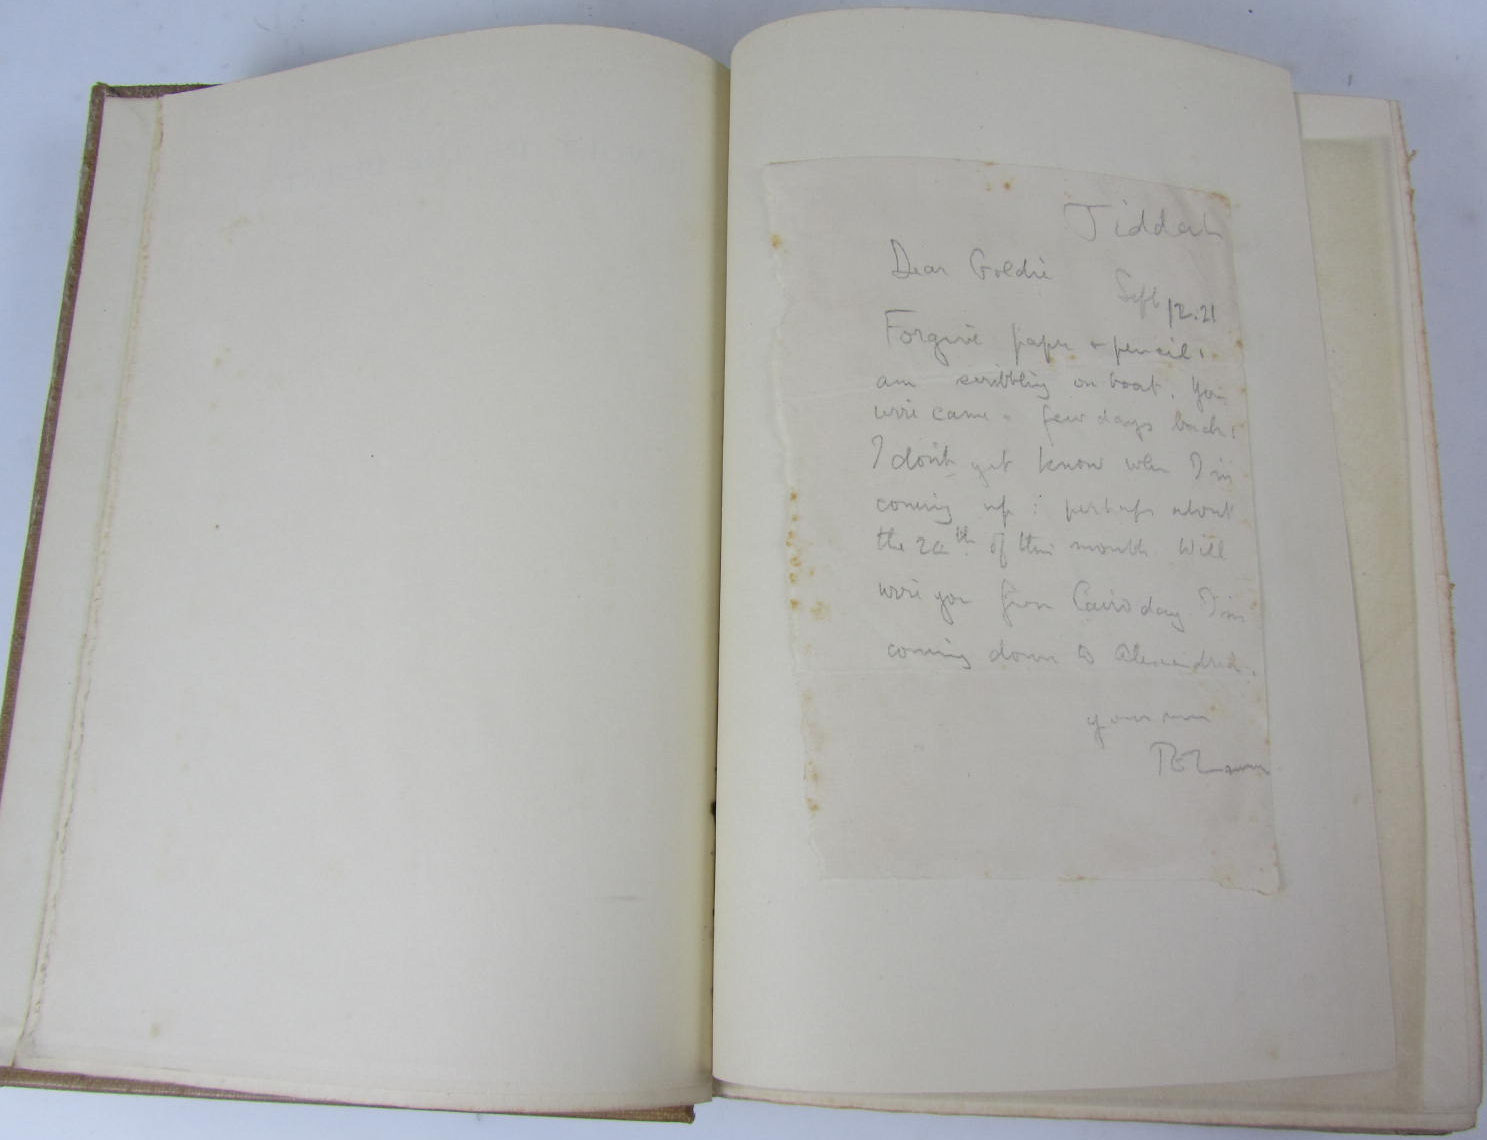 Jiddah
Dear Goldie
Sept 12.21
Forgive paper + pencil:
am scribbling on boat. Your
wire came a few days back:
I don't yet know when I'm
coming up: perhaps about
the 20th of this month. Will
wire you from Cairo day I'm
coming down to Alexandria.
yours ever
TELawrence